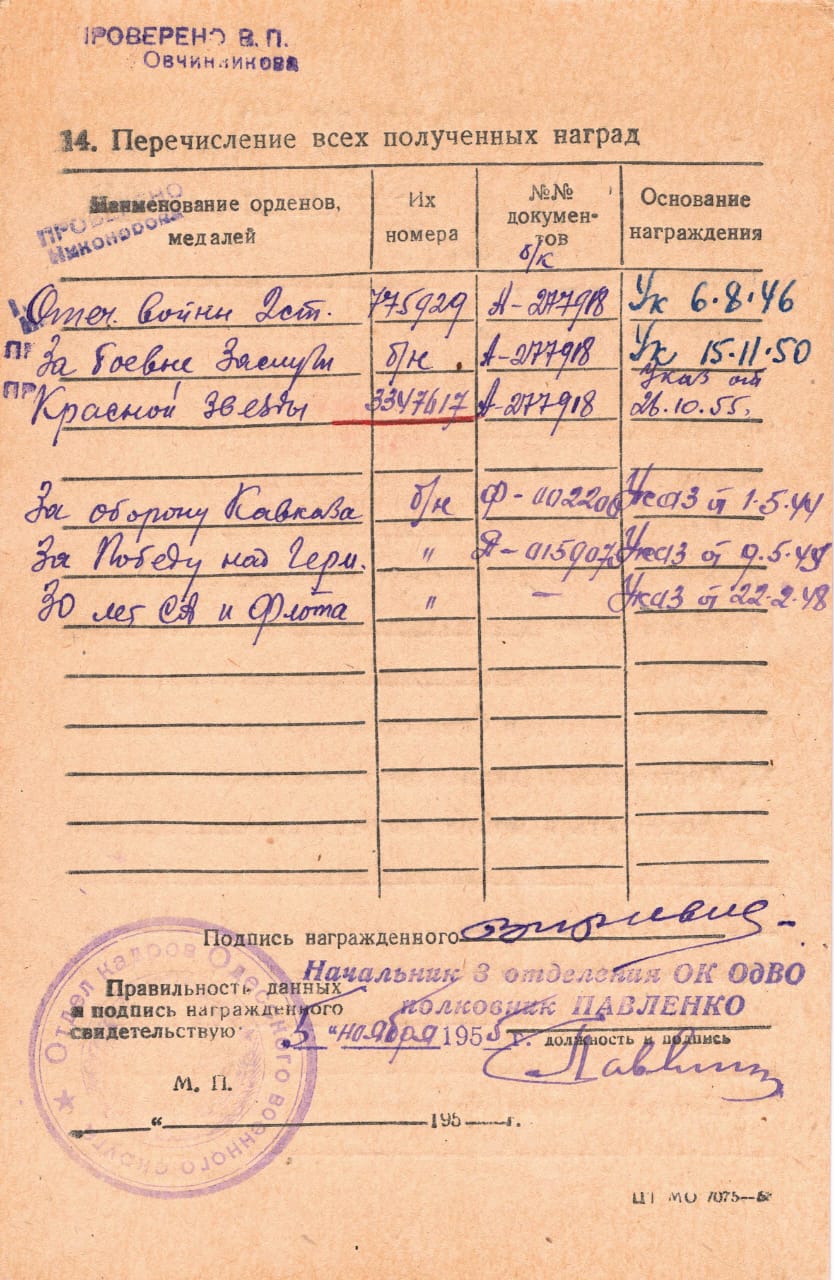 ПРОВЕРЕНО В. П.
Овчинникова
14. Перечисление всех полученных наград
Наименование орденов, медалей
Их номера
№№ документов
б/к
Основание награждения
ПРОВЕРЕНО
Никонорова
Отеч. войны 2 ст. 775929 А-277918 Ук 6.8.46
За боевые Заслуги б/н. А-277918 Ук 15.11.50
Красной звезды 3347617 А-277918 Указ от 26.10.55.
За оборону Кавказа б/н Ф-002206 Указ от 1.5.44
За Победу над Герм. " Я-015907 Указ от 9.5.45
30 лет СА и Флота " — Указ от 22.2.48
Подпись награжденного
Начальник 3 отделения ОК ОдВО
Правильность данных
и подпись награжденного
свидетельствую:
полковник ПАВЛЕНКО
"5" ноября 1955 г. должность и подпись
М. П.
"	195 г.
Отдел кадров Одесского военного округа
ЦТ МО 7075—